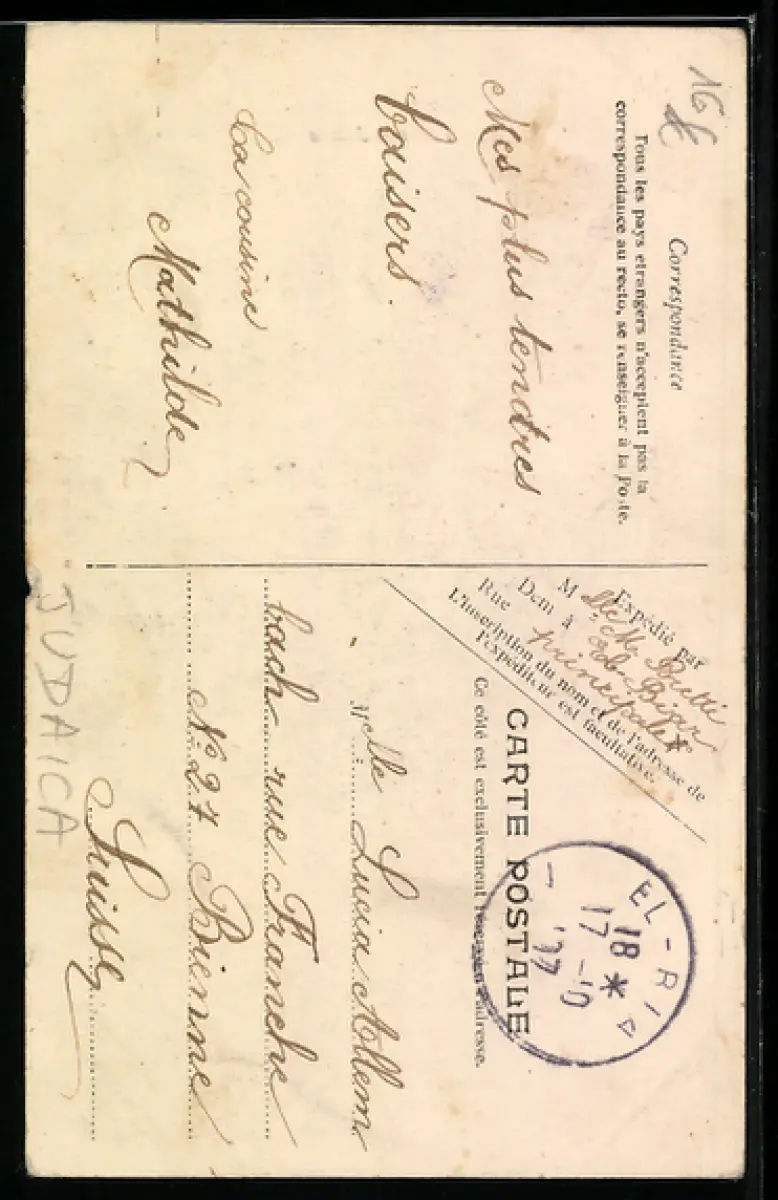 16
Correspondance
Tous les pays étrangers n'acceptent pas la
correspondance au recto, se renseigner à la Poste.
Mes plus tendres
baisers.
La cousine
Mathilde
Expédié par
M elle M.
Dem à El-Biar
Rue principale
L'inscription du nom et de l'adresse de
l'expéditeur est facultative.
CARTE POSTALE
Ce côté est exclusivement réservé à l'adresse.
EL-BIA
18 *
17 -
Melle Lucia Allem
bach rue Franche
No 27 Bienne
Suisse
JUDAICA